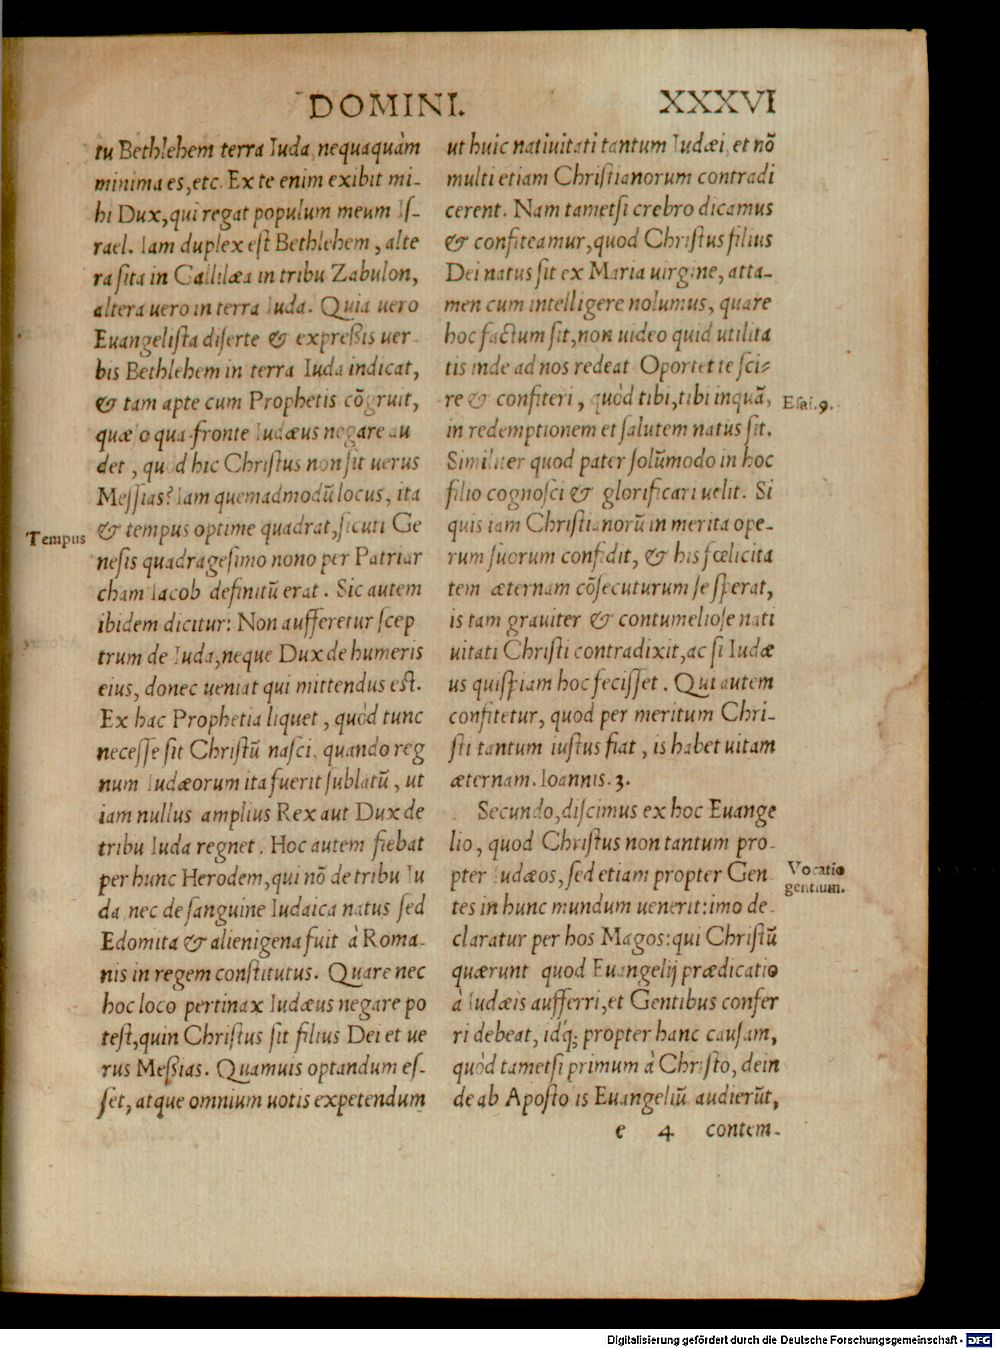 DOMINI.
XXXVI
tu Bethlehem terra Iuda, nequaquàm
minima es, etc. Ex te enim exibit mi-
hi Dux, qui regat populum meum Is-
rael. Iam duplex est Bethlehem, alte
ra sita in Gallilæa in tribu Zabulon,
altera uero in terra Iuda. Quia uero
Euangelista diserte & expreßis uer
bis Bethlehem in terra Iuda indicat,
& tam apte cum Prophetis cõgruit,
quæso qua fronte Iudæus negare au
det, quod hic Christus non sit uerus
Messias? Iam quemadmodũ locus, ita
& tempus optime quadrat, sicuti Ge
nesis quadragesimo nono per Patriar
cham Iacob definitũ erat. Sic autem
ibidem dicitur: Non aufferetur scep
trum de Iuda, neque Dux de humeris
eius, donec ueniat qui mittendus est.
Ex hac Prophetia liquet, quòd tunc
necesse sit Christũ nasci, quando reg
num Iudæorum ita fuerit sublatũ, ut
iam nullus amplius Rex aut Dux de
tribu Iuda regnet. Hoc autem fiebat
per hunc Herodem, qui nõ de tribu Iu
da, nec de sanguine Iudaica natus sed
Edomita & alienigena fuit à Roma-
nis in regem constitutus. Quare nec
hoc loco pertinax Iudæus negare po
test, quin Christus sit filius Dei et ue
rus Meßias. Quamuis optandum es-
set, atque omnium uotis expetendum
Tempus
ut huic natiuitati tantum Iudæi, et nõ
multi etiam Christianorum contradi
cerent. Nam tametsi crebro dicamus
& confiteamur, quod Christus filius
Dei natus sit ex Maria uirgine, atta-
men cum intelligere nolumus, quare
hoc factum sit, non uideo quid utilita
tis inde ad nos redeat. Oportet te sci-
re & confiteri, quòd tibi, tibi inquã,
in redemptionem et salutem natus sit.
Similiter quod pater solũmodo in hoc
filio cognosci & glorificari uelit. Si
quis iam Christianorũ in merita ope-
rum suorum confidit, & his fœlicita
tem æternam cõsecuturum se sperat,
is tam grauiter & contumeliose nati
uitati Christi contradixit, ac si Iudæ
us quispiam hoc fecisset. Qui autem
confitetur, quod per meritum Chri-
sti tantum iustus fiat, is habet uitam
æternam. Ioannis. 3.
Secundo, discimus ex hoc Euange
lio, quod Christus non tantum pro-
pter Iudæos, sed etiam propter Gen
tes in hunc mundum uenerit: imo de-
claratur per hos Magos: qui Christũ
quærunt quod Euangelij prædicatio
à Iudæis aufferri, et Gentibus confer
ri debeat, idq́; propter hanc causam,
quòd tametsi primum à Christo, dein
de ab Apostolis Euangeliũ audierũt,
Esai. 9.
Vocatio
gentium.
e 4 contem-
Digitalisierung gefördert durch die Deutsche Forschungsgemeinschaft - DFG